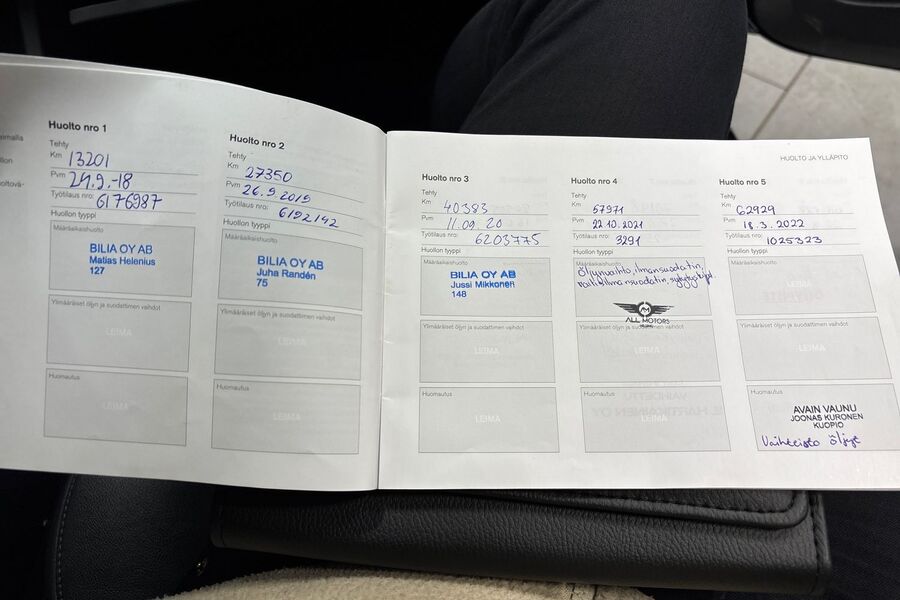 Huolto nro 1
Tehty
Km 13201
Pvm 24.9.-18
Työtilaus nro: 6176987
Huollon tyyppi
Määräaikaishuolto
BILIA OY AB
Matias Helenius
127
Ylimääräiset öljyn ja suodattimen vaihdot
LEIMA
Huomautus
LEIMA
Huolto nro 2
Tehty
Km 27350
Pvm 26.9.2019
Työtilaus nro: 6192142
Huollon tyyppi
Määräaikaishuolto
BILIA OY AB
Juha Randén
75
Ylimääräiset öljyn ja suodattimen vaihdot
LEIMA
Huomautus
LEIMA
HUOLTO JA YLLÄPITO
Huolto nro 3
Tehty
Km 40383
Pvm 11.09.20
Työtilaus nro: 6203775
Huollon tyyppi
Määräaikaishuolto
BILIA OY AB
Jussi Mikkonen
148
Ylimääräiset öljyn ja suodattimen vaihdot
LEIMA
Huomautus
LEIMA
Huolto nro 4
Tehty
Km 57971
Pvm 22.10.2021
Työtilaus nro: 3291
Huollon tyyppi
Määräaikaishuolto
Öljynvaihto, ilmansuodatin,
raitisilmansuodatin, sytytystulpat.
ALL MOTORS
Ylimääräiset öljyn ja suodattimen vaihdot
LEIMA
Huomautus
LEIMA
Huolto nro 5
Tehty
Km 62929
Pvm 18.3.2022
Työtilaus nro: 1025323
Huollon tyyppi
Määräaikaishuolto
LEIMA
Ylimääräiset öljyn ja suodattimen vaihdot
LEIMA
Huomautus
AVAIN VAUNU
JOONAS KURONEN
KUOPIO
Vaihteisto öljyt